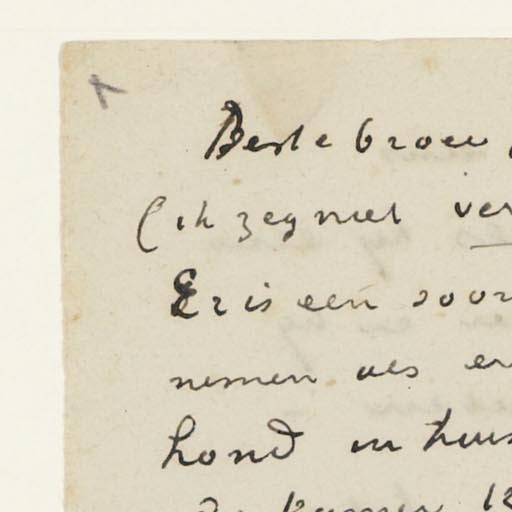 Beste broer,
(ik zeg niet ver
Er is een soor
nemen als er
hond in huis
de kamer